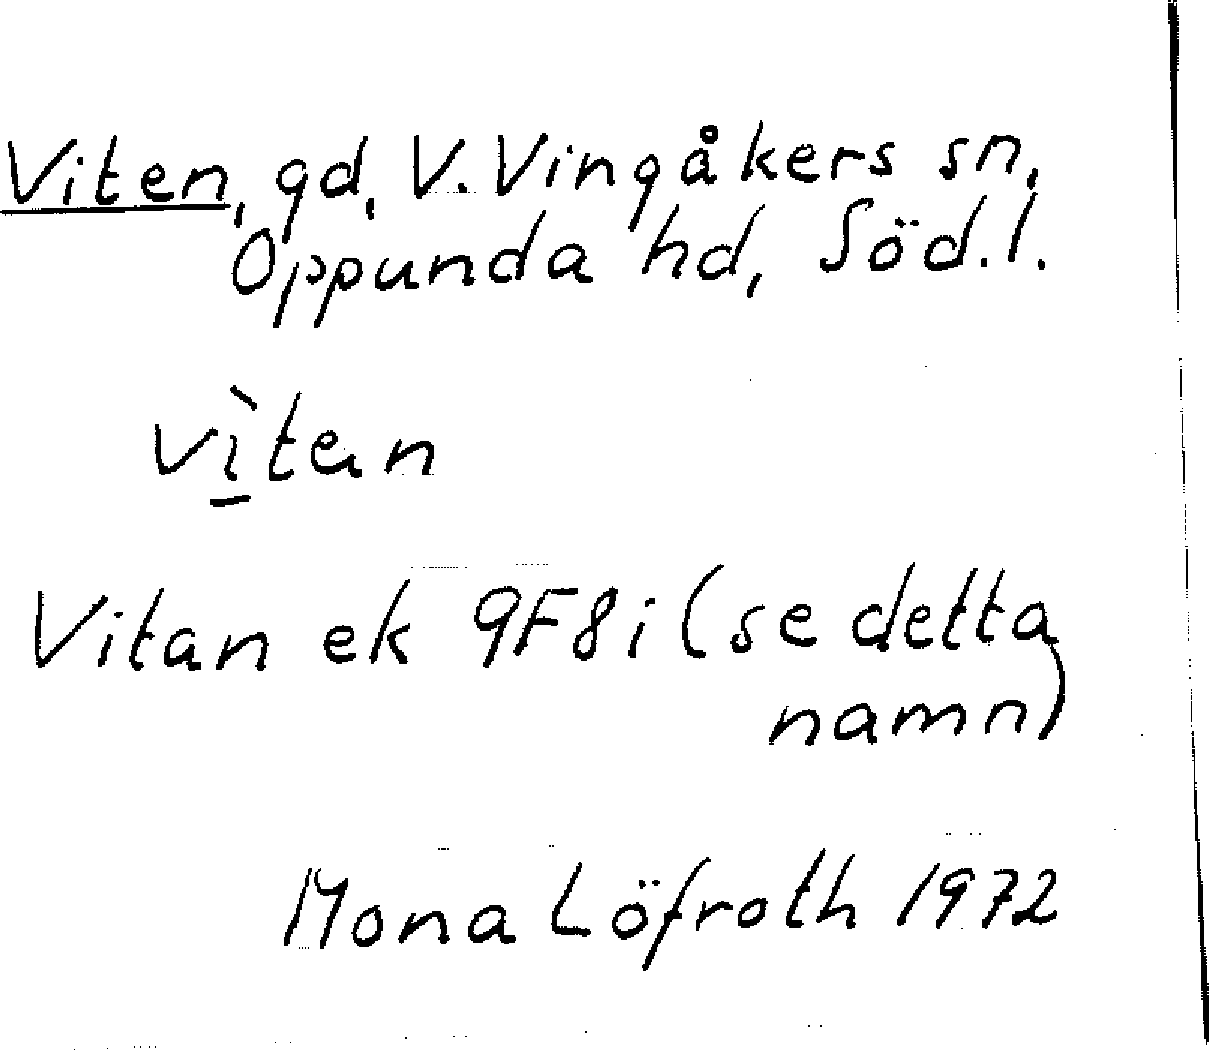 Viten, gd, V. Vingåkers sn,
Oppunda hd, Söd.l.
vı̲̀ten
Vitan ek 9F8i (se detta
namn)
Mona Löfroth 1972